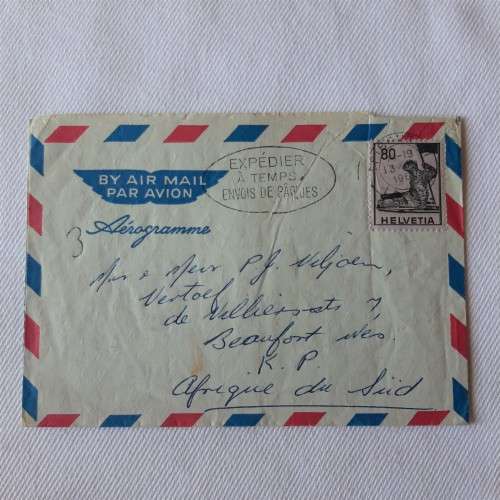 BY AIR MAIL
PAR AVION
EXPÉDIER
À TEMPS
ENVOIS DE PÂQUES
80
HELVETIA
13
3
Aérogramme
Mnr & Mevr P.J. Viljoen,
Vertoef
de Villiersstr 7,
Beaufort Wes.
K. P.
Afrique du Süd